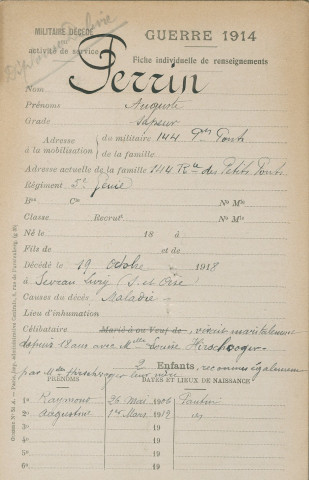 MILITAIRE DÉCÉDÉ
activité de service
GUERRE 1914
Fiche individuelle de renseignements
Nom Perrin
Prénoms Auguste
Grade Sapeur
Adresse à la mobilisation du militaire 144 Pts Ponts
de la famille
Adresse actuelle de la famille 144 Rue des Petits Ponts
Régiment 5e Génie
Bon Cie No Mle
Classe Recrut No Mle
Né le 18 à
Fils de et de
Décédé le 19 Octobre 1918
à Sevran Livry (S. et Oise)
Causes du décès Maladie
Lieu d'inhumation
Célibataire Marié à ou Veuf de, vivait maritalement
depuis 18 ans avec Melle Louise Hirschoeger
2 Enfants, reconnus également
par Melle Hirschoeger leur mère
PRÉNOMS DATES ET LIEUX DE NAISSANCE
1o Raymond 26 Mai 1906 Pantin
2o Augustine 1er Mars 1919 id
3o 19
4o 19
5o 19
6o 19